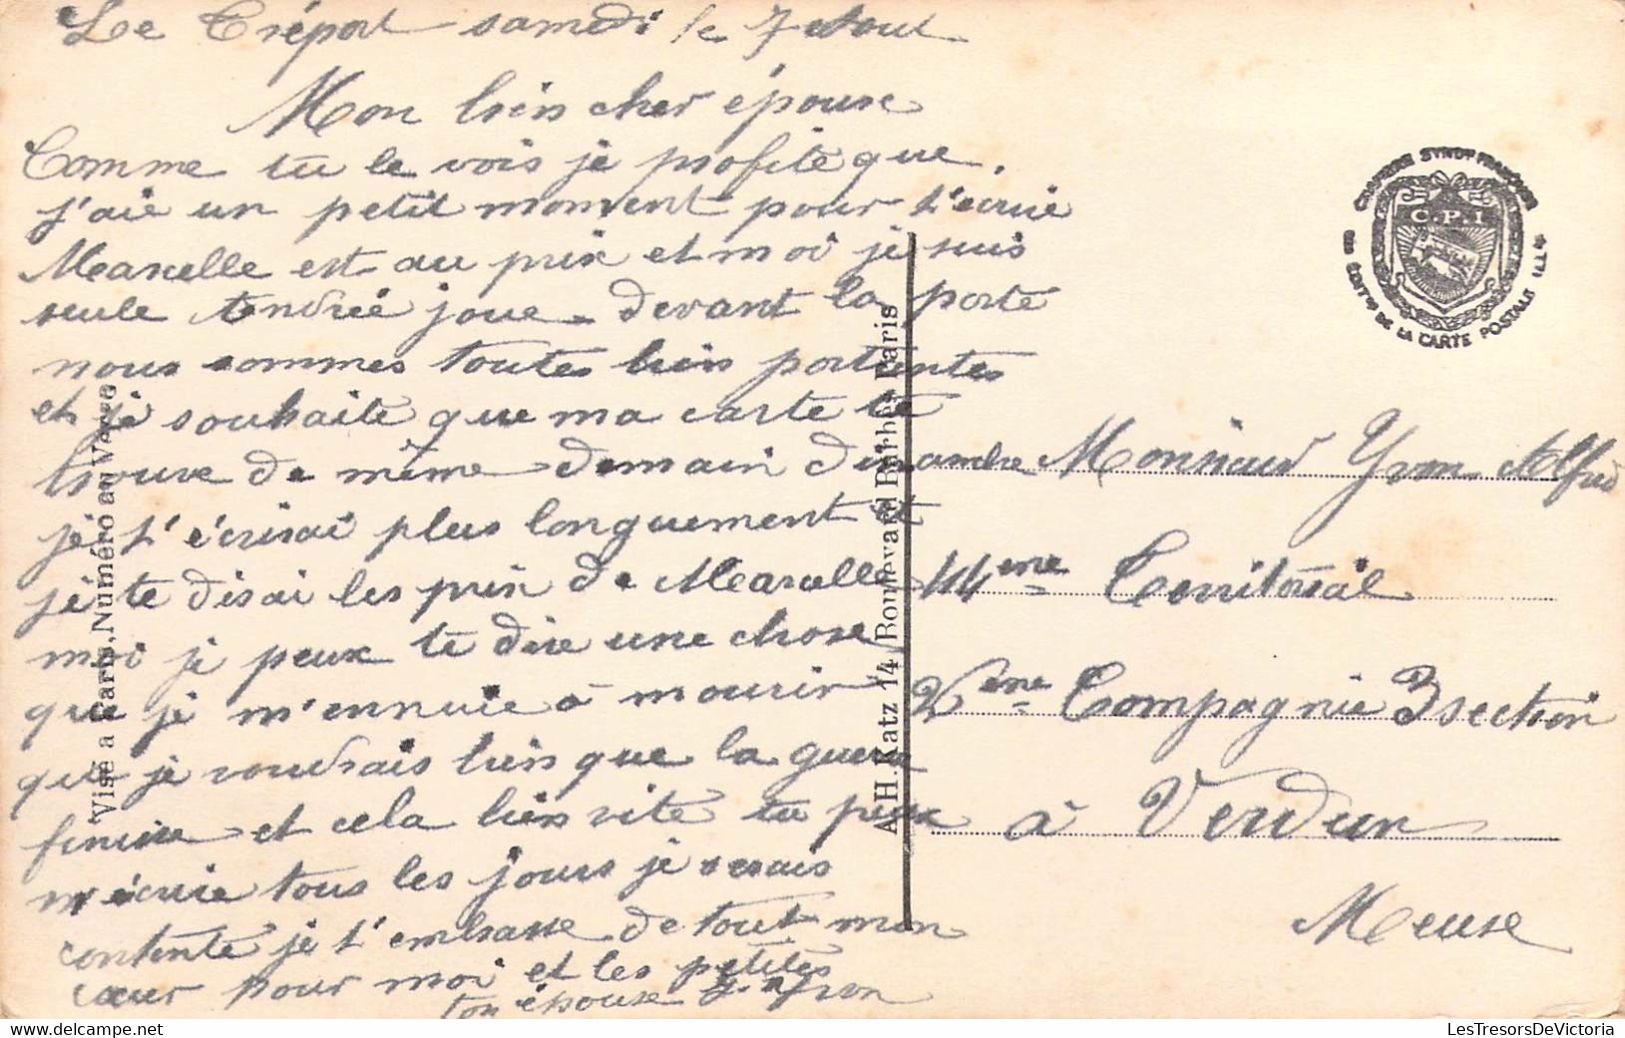 Le Tréport samedi le 7 Aout
Mon bien cher épouse
Comme tu le vois je profite que
j'aie un petit moment pour t'ecrire
Marcelle est au prix et moi je suis
seule Andrée joue devant la porte
nous sommes toutes bien portantes
et je souhaite que ma carte te
trouve de même demain dimanche
je t'écrirai plus longuement et
je te dirai les prix de Marcelle
moi je peux te dire une chose
que je m'ennuie à mourir
que je voudrais bien que la guerre
finisse et cela bien vite tu peux
m'écrire tous les jours je serais
contente je t'embrasse de tout mon
cœur pour moi et les petites
ton épouse Y. Yvon
Visé à Paris, Numéro au Verso
A.H. Katz 14 Boulevard Barbès Paris
CHAMBRE SYNDle FRANÇAISE
C.P.I
DES ÉDITrs DE LA CARTE POSTALE ILLée
Monsieur Yvon Alfred
14eme Territorial
2eme Compagnie 3 section
à Verdun
Meuse
LesTresorsDeVictoria
delcampe.net
LesTresorsDeVictoria